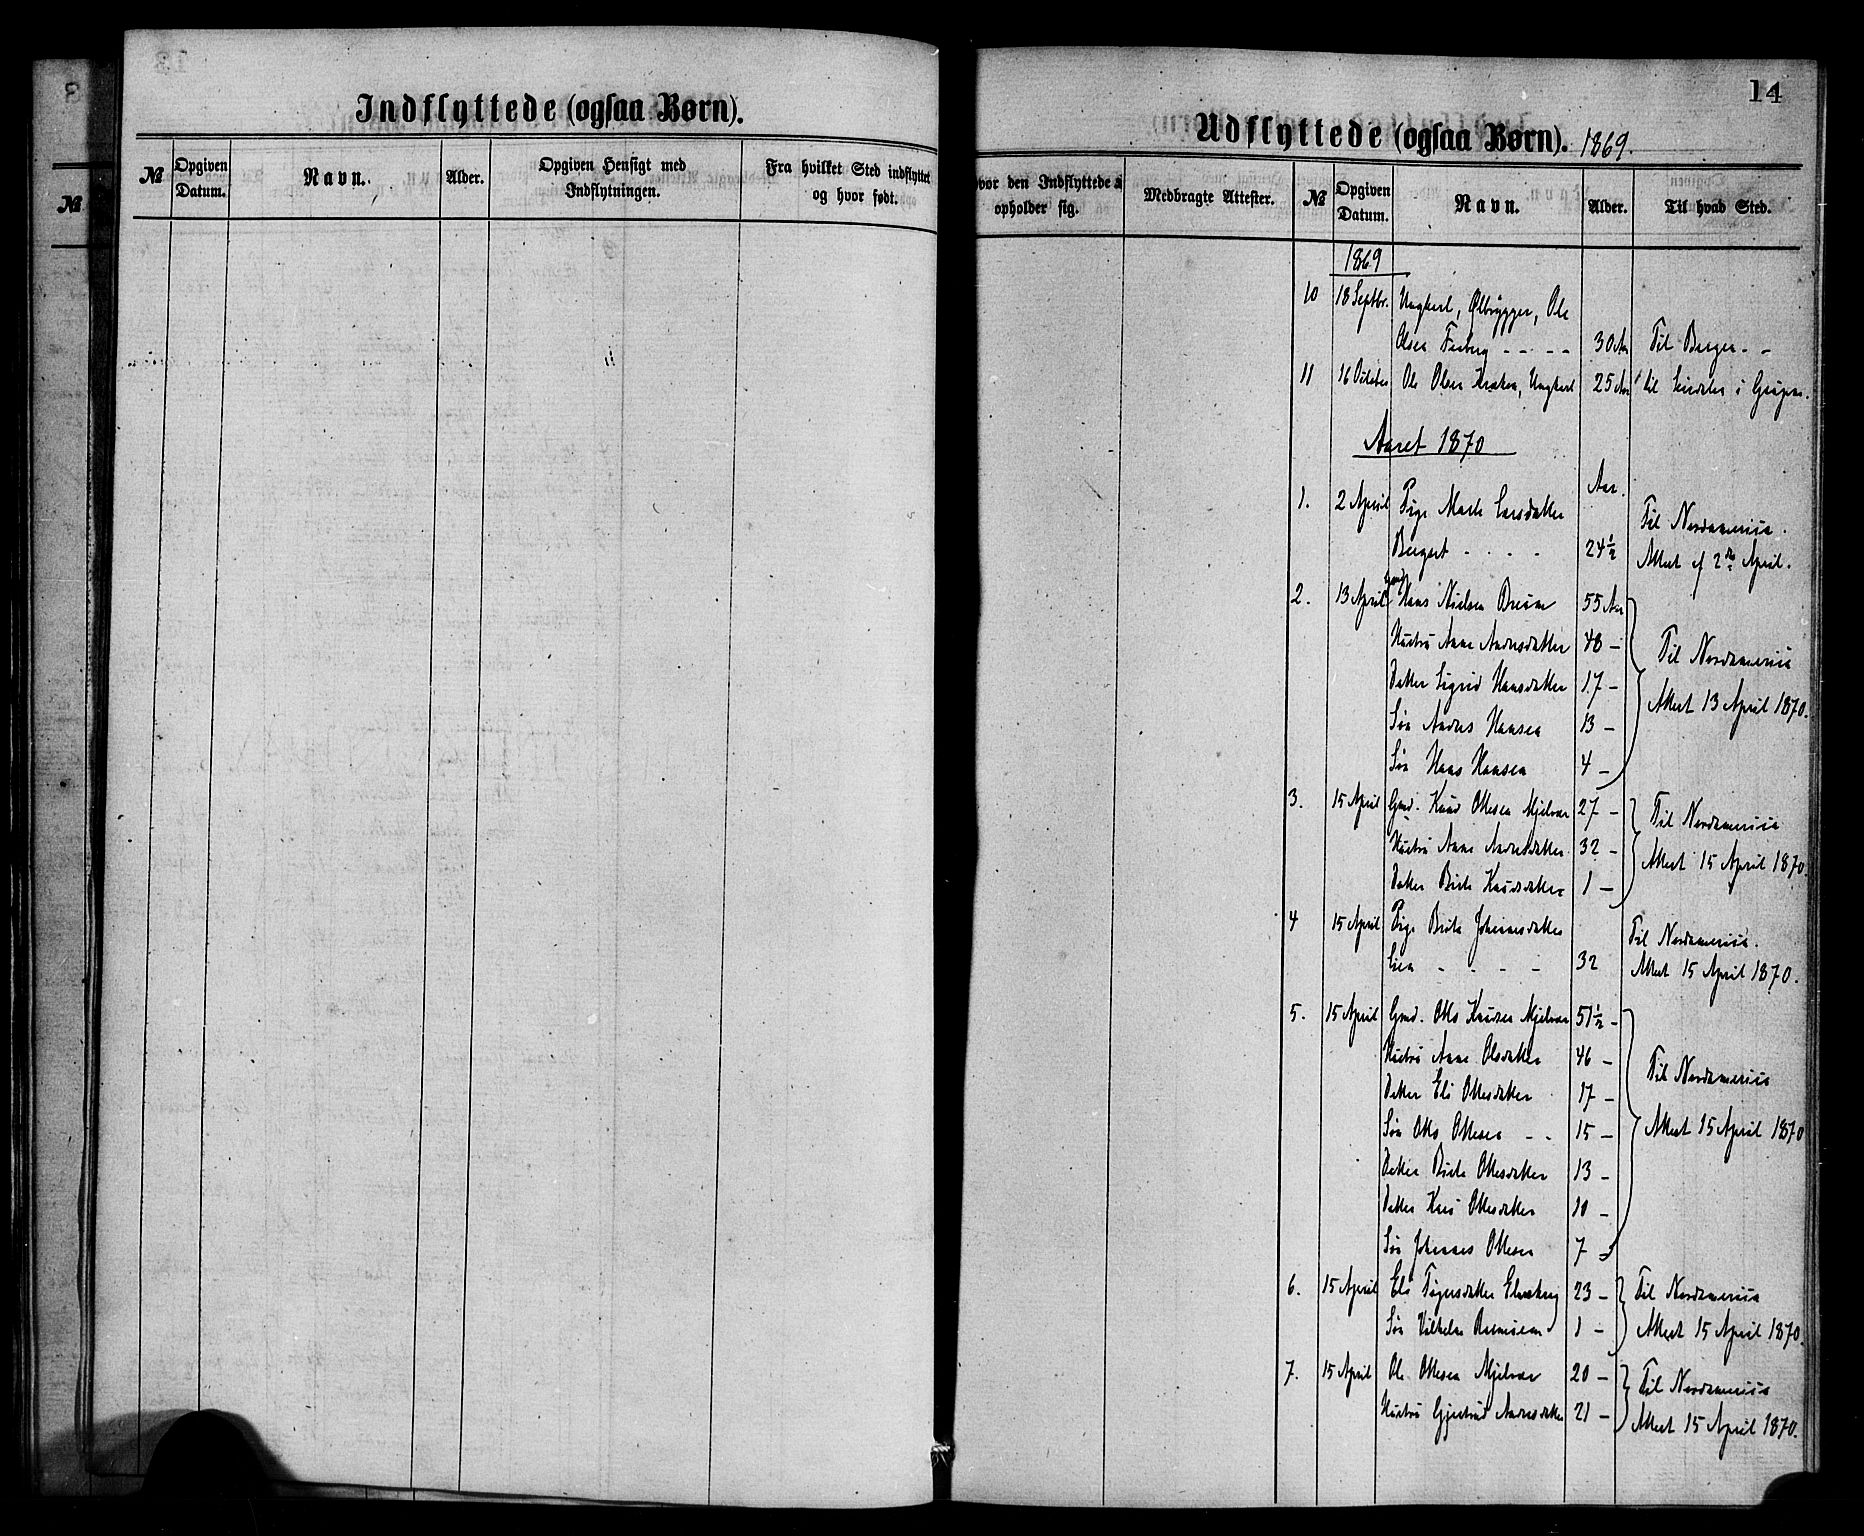 Indflyttede (ogsaa Børn).
№ Opgiven Datum. Navn. Alder. Opgiven Hensigt med Indflytningen. Fra hvilket Sted indflyttet og hvor født.
№
14
Udflyttede (ogsaa Børn). 1869.
vor den Indflyttede opholder sig. Medbragte Attester. № Opgiven Datum. Navn. Alder. Til hvad Sted.
1869
10 18 Septbr. Ungkarl, Ølbrygger, Ole
Olsen 30 Aar Til Bergen
11 16 October Ole Olsen Ungkarl 25 Aar til i
Aaret 1870
Aar.
1. 2 April Pige Marte Larsdatter Til Nordamerica.
24½ Attest af 2den April.
2. 13 April Gmd. Hans Nielsen 55 Aar
Hustru Anne Andersdatter 48 – Til Nordamerica
Datter Sigrid Hansdatter 17 – Attest 13 April 1870.
Søn Anders Hansen 13 –
Søn Hans Hansen 4 –
3. 15 April Gmd. Knud Ottesen Mjelvær 27 – Til Nordamerica
Hustru Anne Andersdatter 32 – Attest 15 April 1870.
Datter Brite Knudsdatter 1 –
4 15 April Pige Brite Johannesdatter Til Nordamerica.
32 Attest 15 April 1870.
5. 15 April Gmd. Otto Knudsen Mjelvær 51½ –
Hustru Anne Olsdatter 46 – Til Nordamerica
Datter Eli Ottesdatter 17 –
Søn Otto Ottesen 15 – Attest 15 April 1870
Datter Brite Ottesdatter 13 –
Datter Kari Ottesdatter 10 –
Søn Johannes Ottesen 7 –
6. 15 April Eli 23 – Til Nordamerica
Søn Vilhelm Rasmussen 1 – Attest 15 April 1870.
7. 15 April Ole Ottesen Mjelvær 20 – Til Nordamerica
Hustru Gjertrud Andersdatter 21 – Attest 15 April 1870.